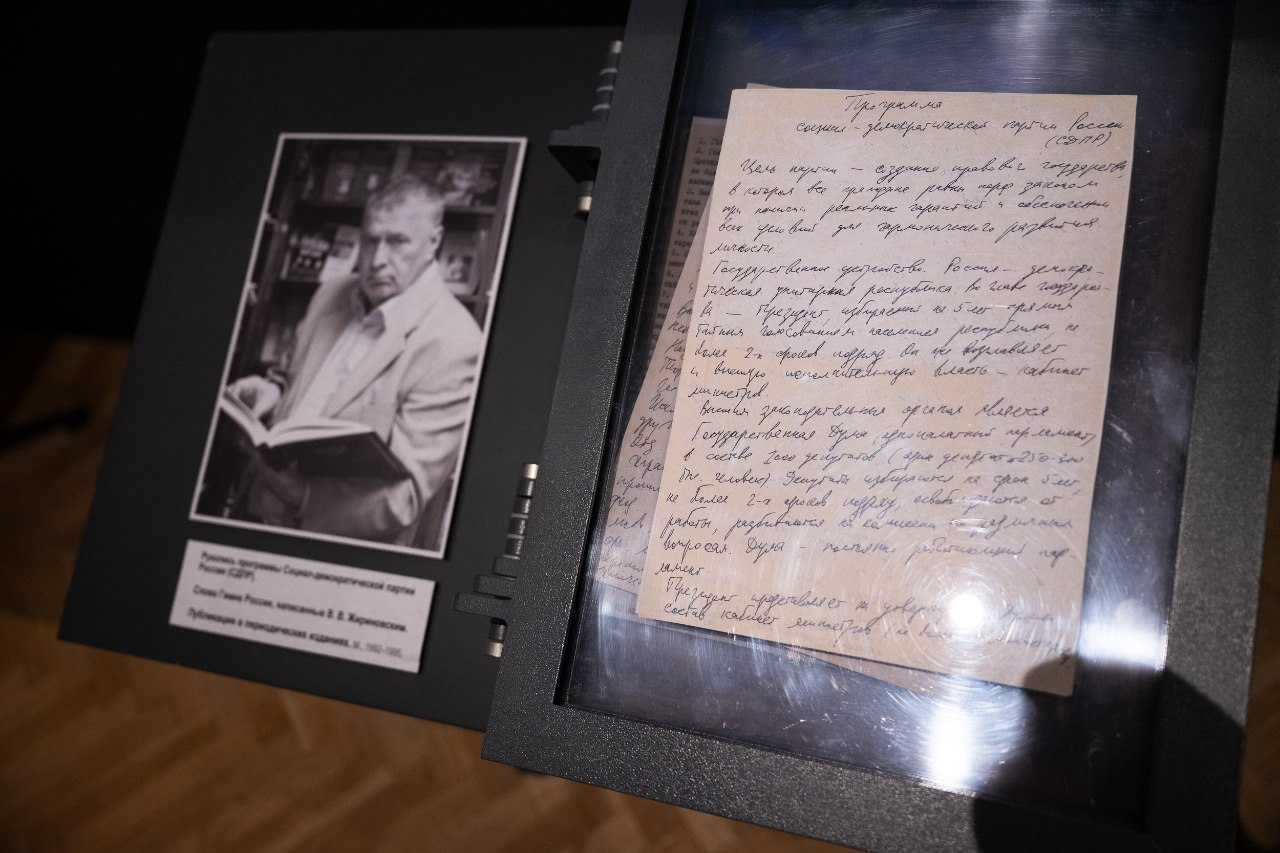 Рукопись программы Социал-демократической партии
России (СДПР).
Слова Гимна России, написанные В. В. Жириновским.
Публикации в периодических изданиях, 1992–1995.
Программа
социал-демократической партии России
(СДПР)
Цель партии — создание правового государства
в котором все граждане равны перед законом
при наличии реальных гарантий и обеспечении
всех условий для гармонического развития
личности.
Государственное устройство. Россия — демокра-
тическая унитарная республика. Во главе государс-
ва — Президент, избираемый на 5 лет прямым
тайным голосованием населения республики, не
более 2-х сроков подряд. Он же возглавляет
и высшую исполнительную власть — кабинет
министров.
Высшим законодательным органом является
Государственная Дума (однопалатный парламент)
в составе 1000 депутатов (один депутат от 250-300
тыс. человек) Депутаты избираются на срок 5 лет,
не более 2-х сроков подряд, освобождаются от
работы, разбиваются на комиссии по различным
вопросам. Дума — постоянно работающий пар-
ламент.
Президент представляет на
состав кабинет министров